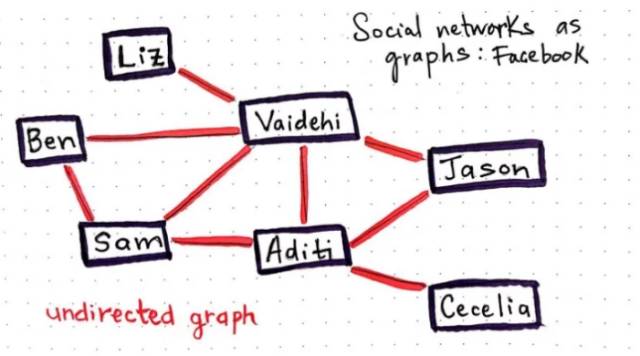 Social networks as
graphs: Facebook
Liz
Vaidehi
Ben
Jason
Sam
Aditi
Cecelia
undirected graph